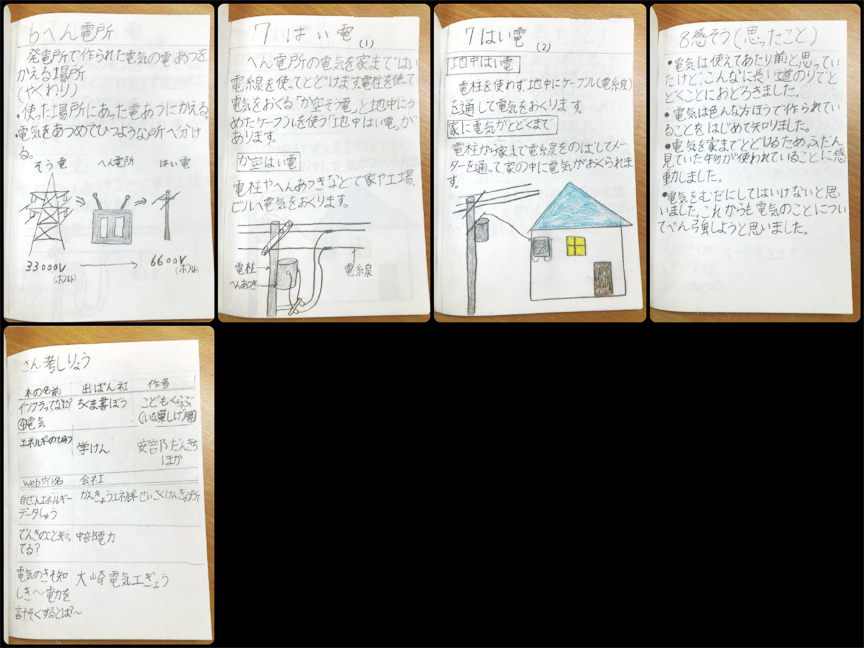 6へん電所
発電所で作られた電気の電あつを
かえる場所
(やくわり)
・使った場所にあった電あつにかえる。
電気をあつめてひつような所へ分け
る。
そう電 へん電所 はい電
33000V → 6600V
(ボルト) (ボルト)
7 はい電 (1)
へん電所の電気を家まではい
電線を使ってとどけます。電柱を使って
電気をおくる「か空そう電」と地中にう
めたケーブルを使う「地中はい電」が
あります。
か空はい電
電柱やへんあつきなどで家や工場、
ビルへ電気をおくります。
電柱
へんあつき
電線
7はい電 (2)
地中はい電
電柱を使わず地中にケーブル(電線)
を通して電気をおくります。
家に電気がとどくまで
電柱から家まで電線をのばしてメ
ーターを通って家の中に電気がおくられま
す。
8感そう(思ったこと)
・電気は使えてあたり前と思ってい
たけど、こんなに長い道のりでと
どくことにおどろきました。
・電気は色んな方ほうで作られてい
ることをはじめて知りました。
・電気を家までとどけるため、ふだん
見ていた物が使われていることに感
動しました。
・電気をむだにしてはいけないと思
いました。これからも電気のことについ
てべん強しようと思いました。
さん考しりょう
本の名前 出ぱん社 作者
インフラってなに? ちくま書ぼう こどもくらぶ
④電気
エネルギーのひみつ 学けん ほか
Webサイト名 会社
自ぜんエネルギー かんきょうエネルギーせいさくけんきゅう所
データしゅう
でんきのこと知っ 中部電力
てる?
電気のきそ知 大崎電気工ぎょう
しき〜電力を
計そくするとは?〜